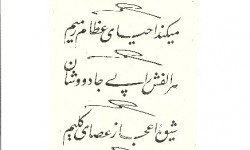 میکند احیای عظام رمیم
هر الفش را پے جادووشان
اعجاز عصای کلیم